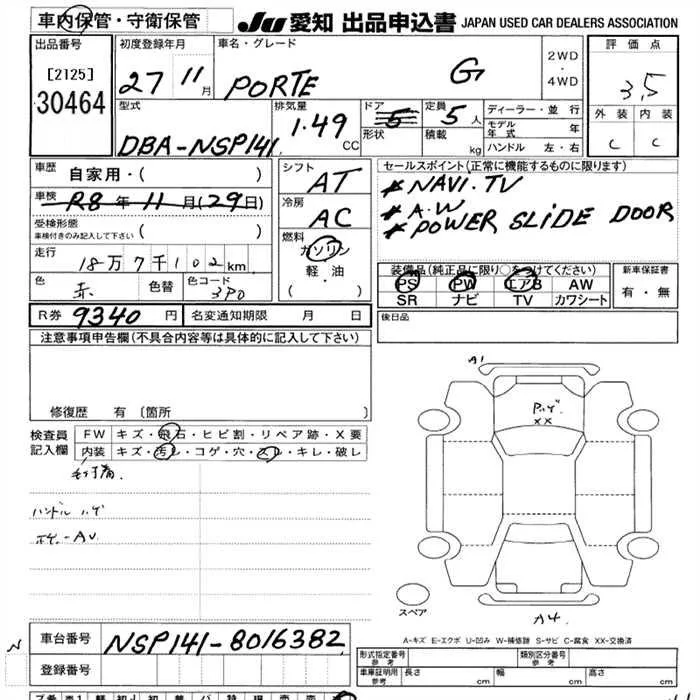 車内保管・守衛保管 JU 愛知 出品申込書 JAPAN USED CAR DEALERS ASSOCIATION
出品番号 初度登録年月 車名・グレード 2WD・4WD 評価点
[2125] 27 11月 PORTE G 3.5
30464
型式 排気量 ドア形状 5 定員 5人 ディーラー・並行 外装 内装
DBA-NSP141 1.49CC 積載 kg モデル年式 年 C C
ハンドル 左・右
車歴 自家用・( ) シフト AT セールスポイント(正常に機能するものに限ります)
車検 R8年11月(29日) 冷房 AC *NAVI.TV
受検形態 ( ) *A.W
車検付きのみ記入して下さい 燃料 *POWER SLIDE DOOR
走行 18万7千102km ガソリン
色 赤 色替 色コード 3P0 軽・油 ( ・ )
装備品(純正品に限り○をつけてください) 新車保証書
PS PW エアB AW 有・無
SR ナビ TV カワシート
R券 9340円 名変通知期限 月 日 後日品
注意事項申告欄(不具合内容等は具体的に記入して下さい)
修復歴 有〔箇所 〕
検査員記入欄 FW キズ・飛石・ヒビ割・リペア跡・X要
内装 キズ・汚レ・コゲ・穴・スレ・キレ・破レ
ハンドル ハゲ
A1
XX
A4
スペア
A-キズ E-エクボ U-凹み W-補修跡 S-サビ C-腐食 XX-交換済
車台番号 NSP141-8016382
N
登録番号
形式指定番号 参考 類別区分番号 参考
車庫証明用 参考 長さ cm 幅 cm 高さ cm